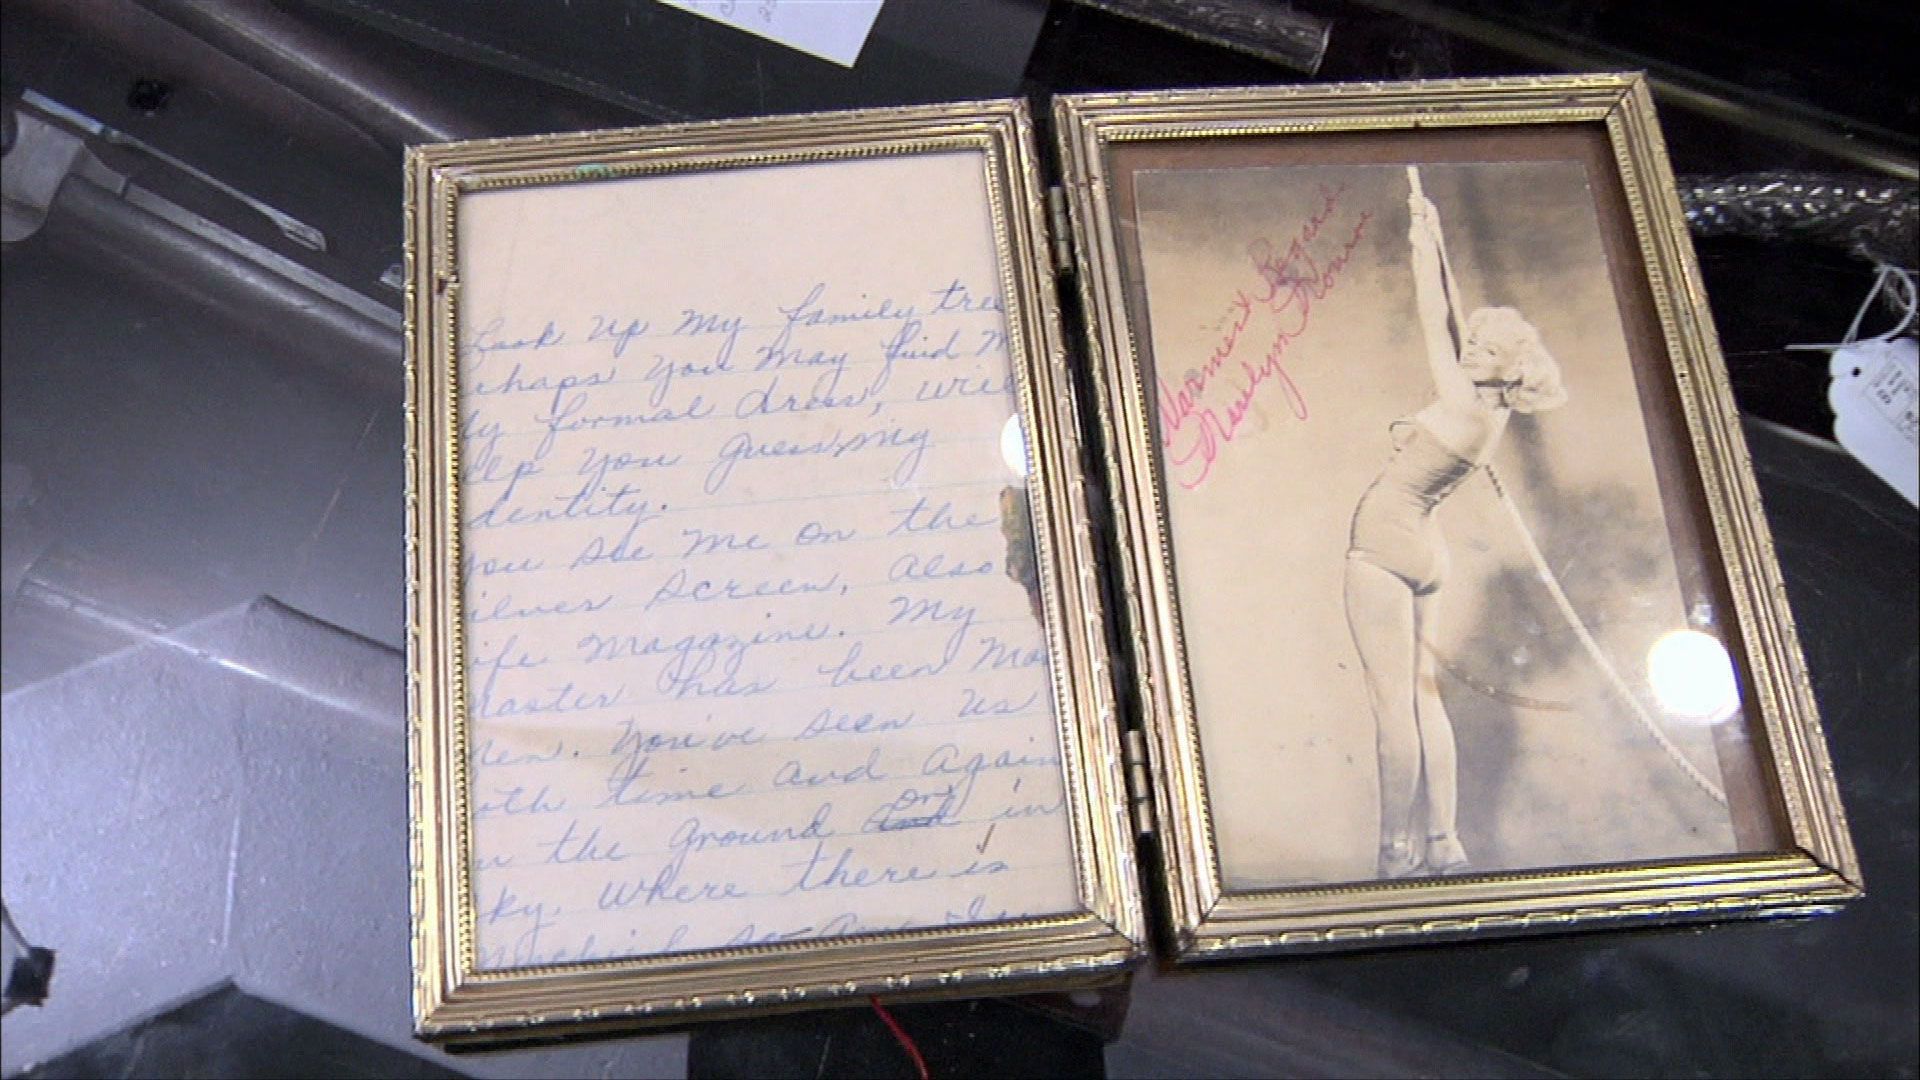 Look up my family tree
rhaps you may find m
ly formal dress, will
elp you guess my
dentity.
you see me on the
ilver screen, also
ife magazine. My
master has been Mac
Men. You've seen us
oth time and again
n the ground and or in
ky. Where there is
Warmest Regards
Marilyn Monroe